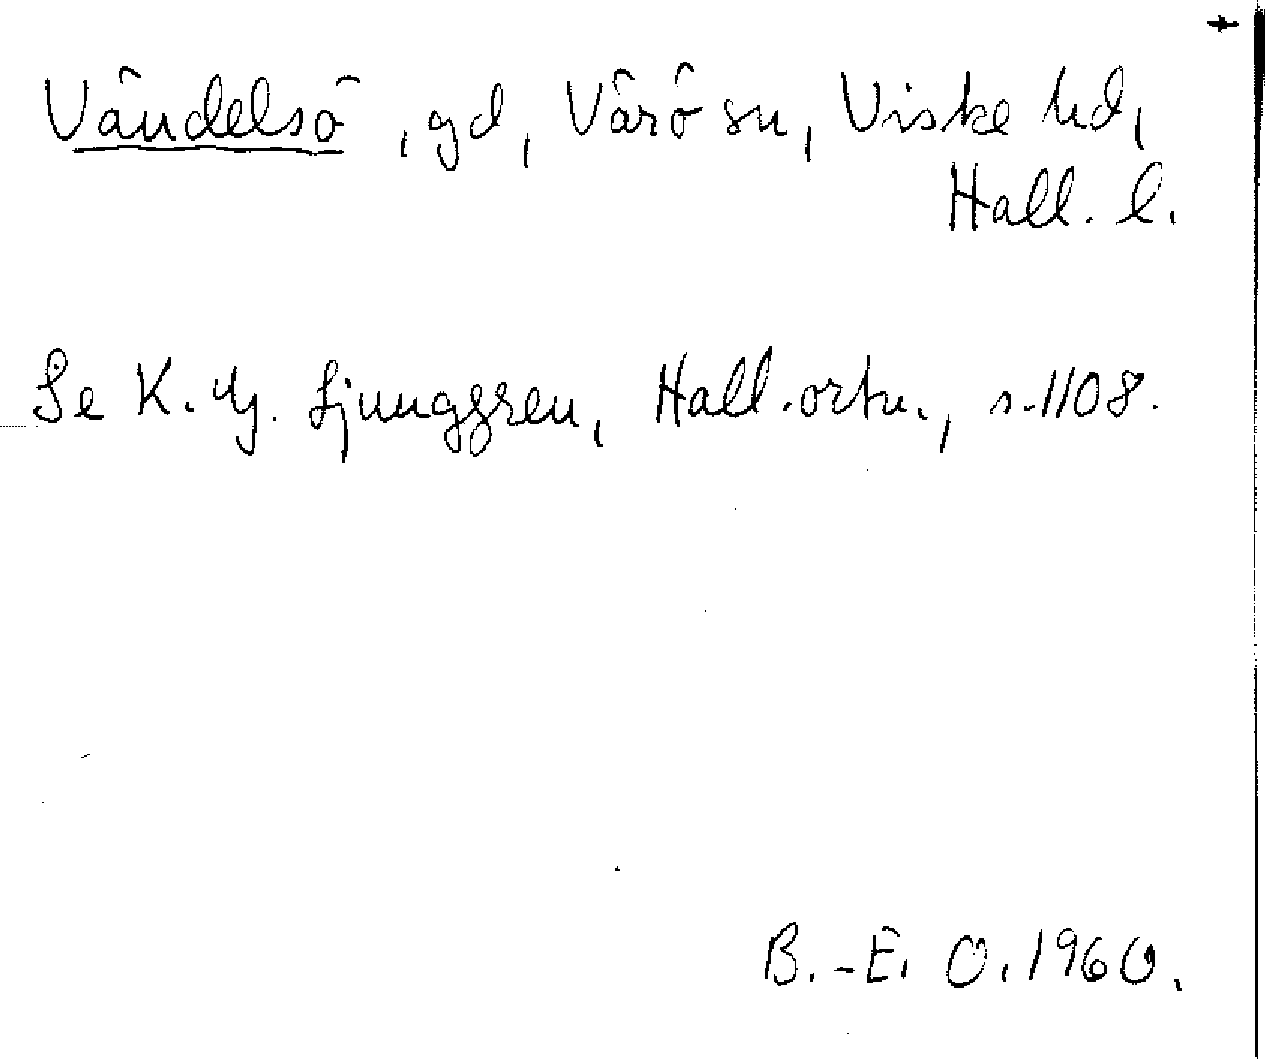 Vändelsö, gd, Värö sn, Viske hd,
Hall. l.
Se K. G. Ljunggren, Hall. ortn., s. 1108.
B.-E. O. 1960.